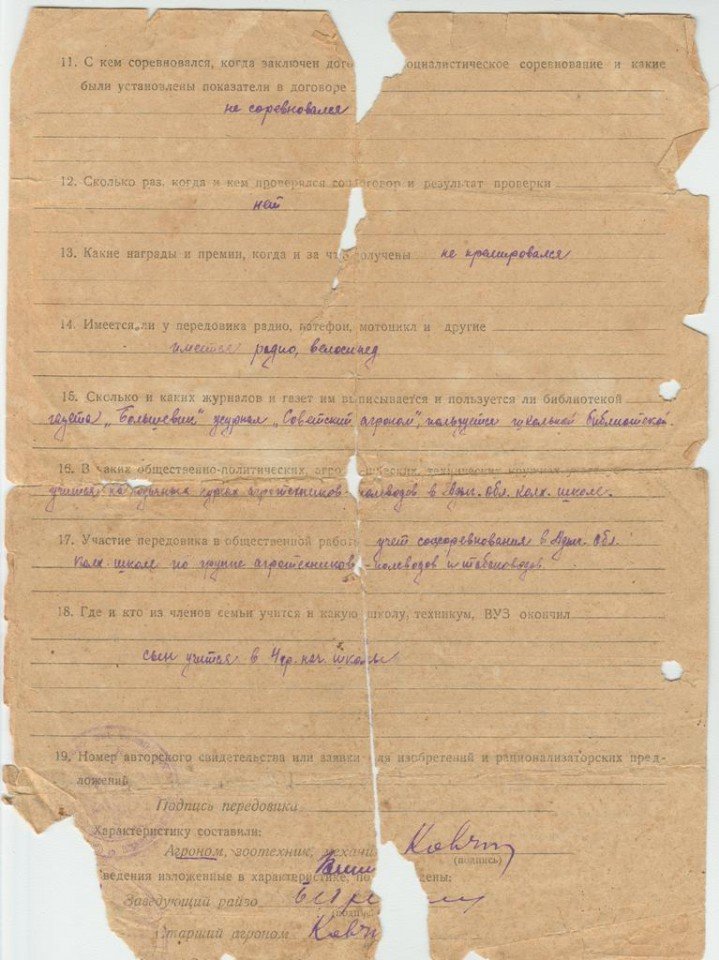 11. С кем соревновался, когда заключен дого оциалистическое соревнование и какие
были установлены показатели в договоре
не соревновался
12. Сколько раз, когда и кем проверялся соцдоговор и результат проверки
нет
13. Какие награды и премии, когда и за что получены не премировался
14. Имеется ли у передовика радио, патефон, мотоцикл и другие
имеется радио, велосипед
15. Сколько и каких журналов и газет им выписывается и пользуется ли библиотекой
газета „Большевик" журнал „Советский агроном", пользуется школьной библиотекой.
16. В каких общественно-политических, агро технических кружках
учится на курсах агротехников-полеводов в Адыг. Обл. колх. школе.
17. Участие передовика в общественной работе учет соцсоревнования в Адыг. Обл.
колх. школе по группе агротехников полеводов и табаководов
18. Где и кто из членов семьи учится и какую школу, техникум, ВУЗ окончил
сын учится в 4 гр. нач. школы
19. Номер авторского свидетельства или заявки для изобретений и рационализаторских пред-
ложений
Подпись передовика
Характеристику составили:
Агроном, зоотехник, механи
(подпись)
ведения изложенные в характеристике, по дены:
Заведующий райзо
Старший агроном